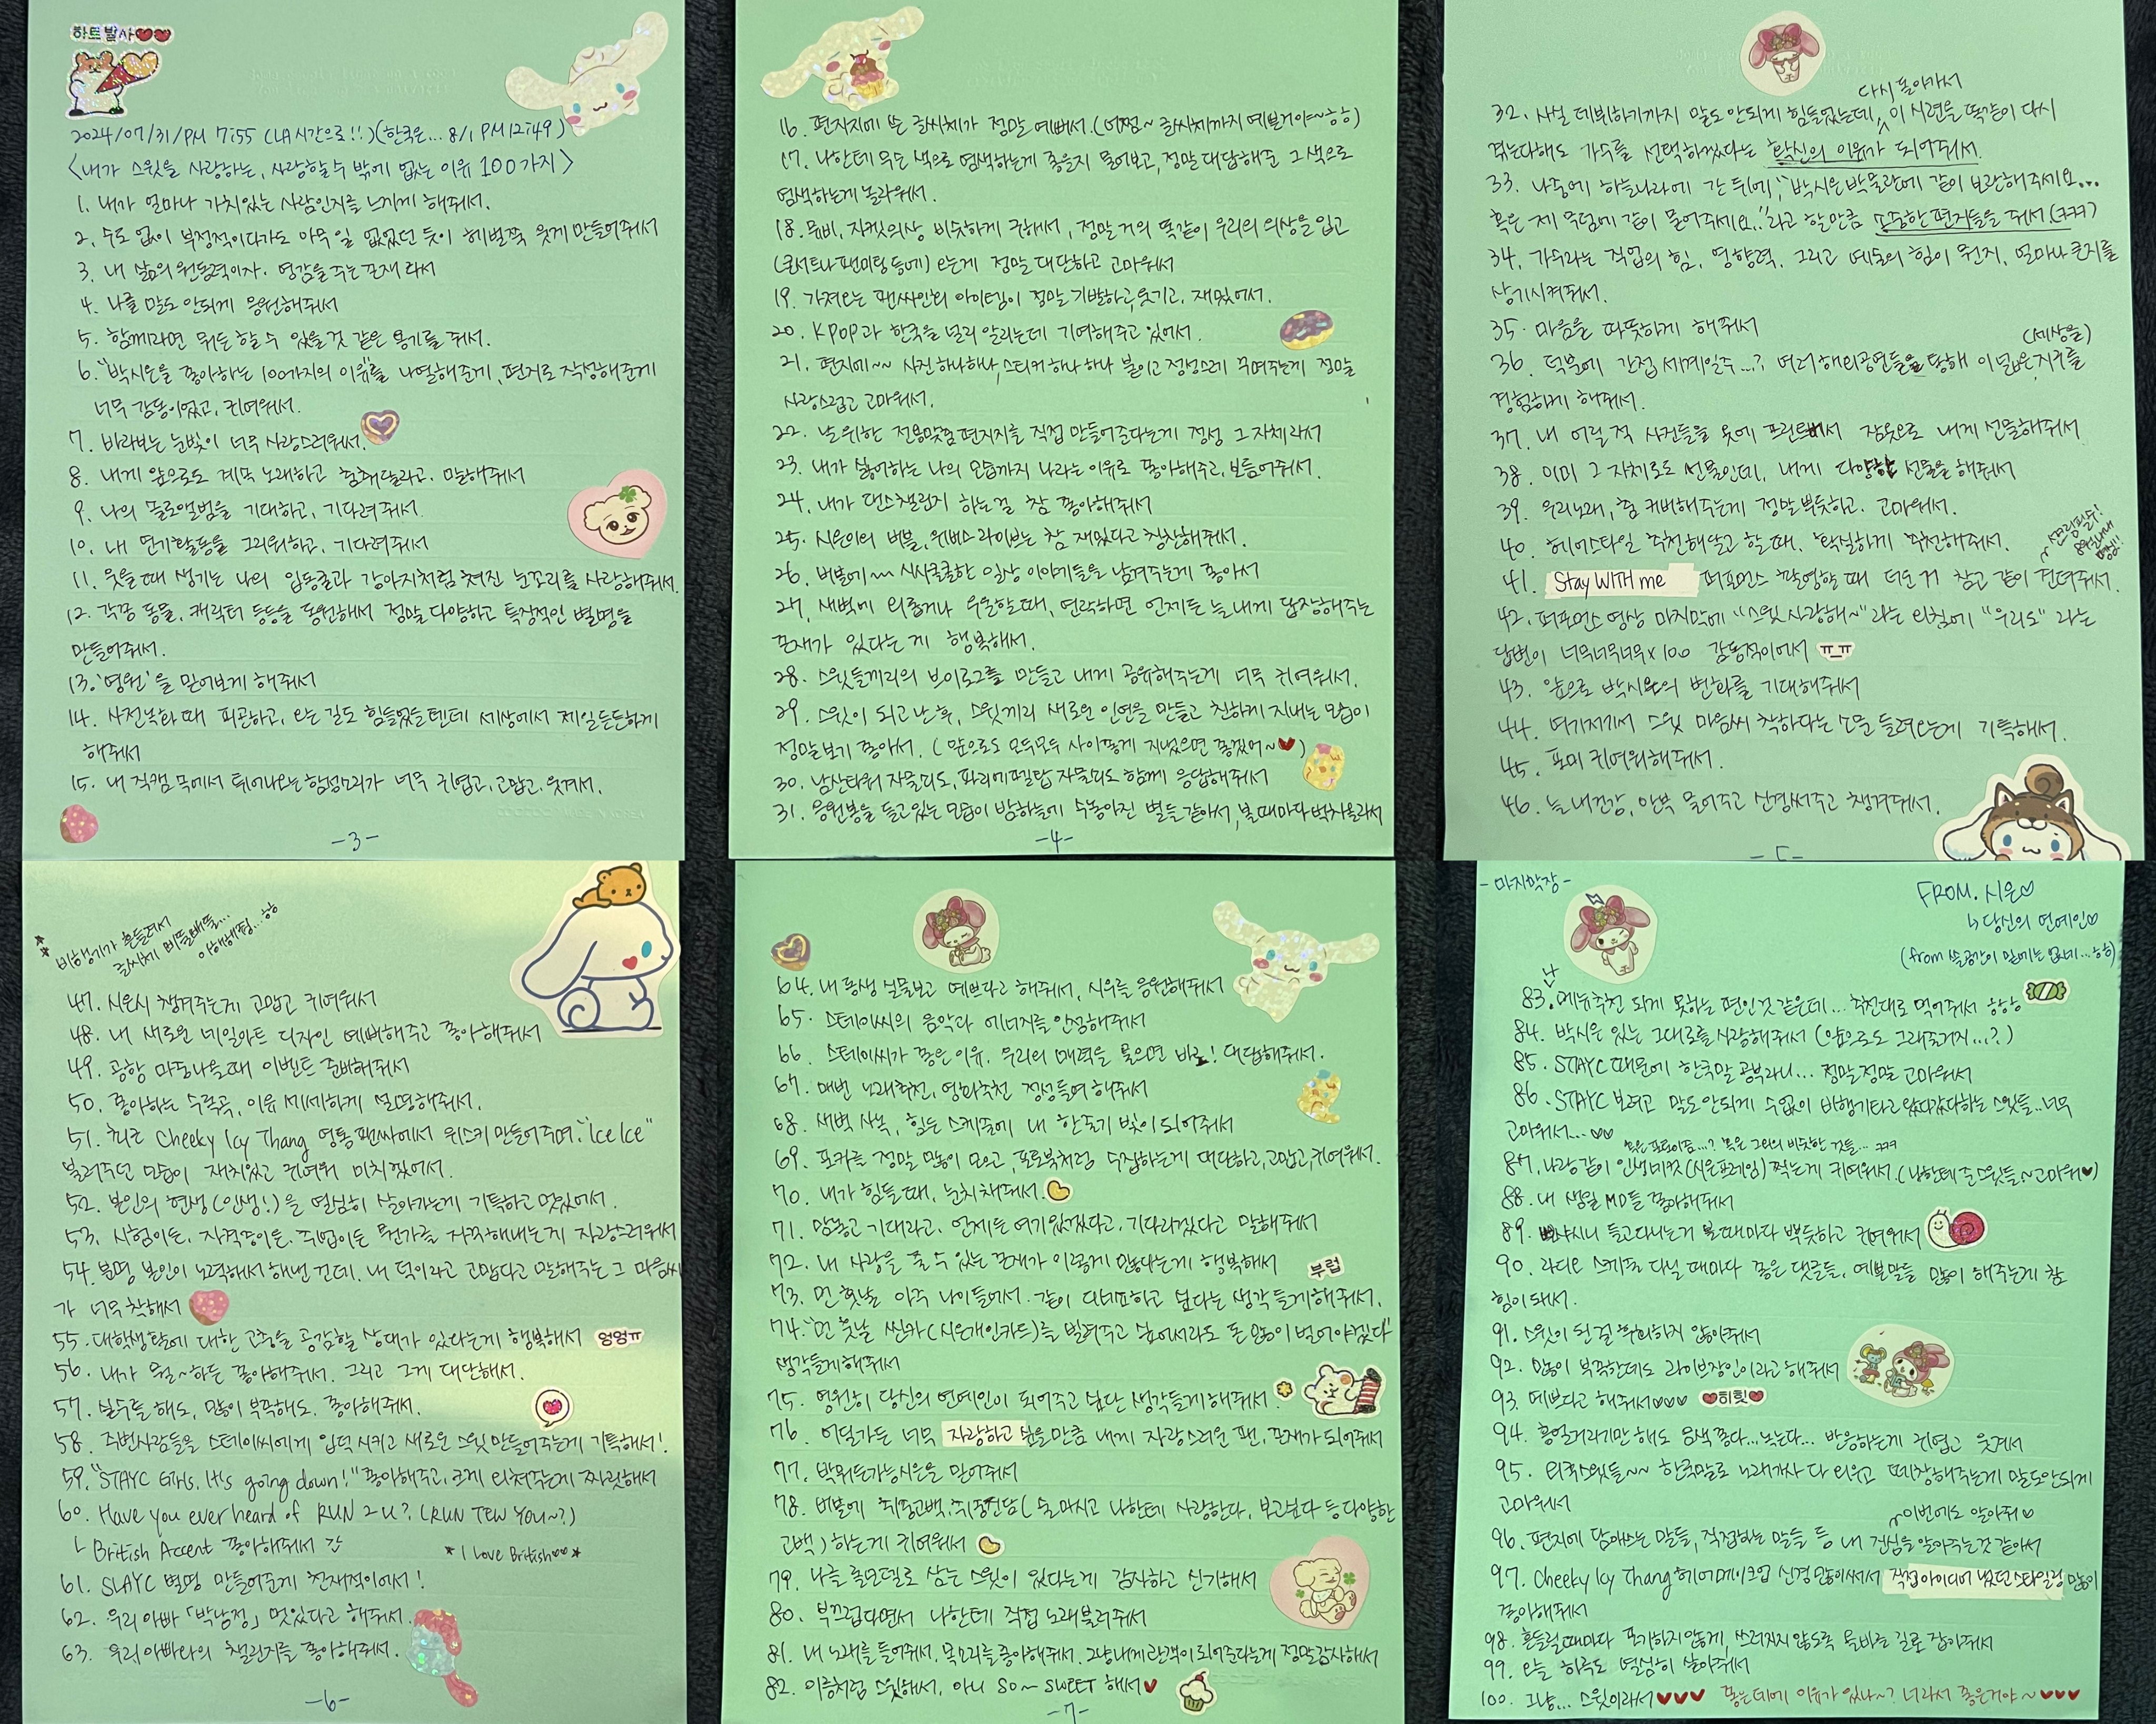 하트발사
2024/07/31/PM 7:55 (LA시간으로!!)(한국은... 8/1 PM12:49)
<내가 스윗을 사랑하는, 사랑할 수 밖에 없는 이유 100가지>
1. 내가 얼마나 가치있는 사람인지를 느끼게 해줘서.
2. 수도 없이 부정적이다가도 아무 일 없었던 듯이 헤벌쭉 웃게 만들어줘서
3. 내 삶의 원동력이자. 영감을 주는 존재라서
4. 나를 말도 안되게 응원해줘서
5. 함께라면 뭐든 할 수 있을 것 같은 용기를 줘서.
6. "박시은을 좋아하는 100가지의 이유"를 나열해준게, 편지로 작성해준게
너무 감동이었고, 귀여워서.
7. 바라보는 눈빛이 너무 사랑스러워서.
8. 내게 앞으로도 계속 노래하고 춤춰달라고, 말해줘서
9. 나의 솔로앨범을 기대하고, 기다려줘서
10. 내 연기활동을 그리워하고, 기다려줘서
11. 웃을때 생기는 나의 입동굴과 강아지처럼 쳐진 눈꼬리를 사랑해줘서.
12. 각종 동물, 캐릭터 등등을 동원해서 정말 다양하고 특징적인 별명을
만들어줘서.
13. '영원'을 믿어보게 해줘서
14. 사전녹화 때 피곤하고, 오는 길도 힘들었을텐데 세상에서 제일 든든하게
해줘서
15. 내 직캠 속에서 튀어나오는 함성소리가 너무 귀엽고, 고맙고, 웃겨서.
-3-
16. 편지지에 쓴 글씨체가 정말 예뻐서. (어쩜~ 글씨체까지 예쁠거야~~ㅎㅎ)
17. 나한테 무슨 색으로 염색하는게 좋을지 물어보고, 정말 대답해준 그 색으로
염색하는게 놀라워서.
18. 뮤비, 자켓의상 비슷하게 구해서, 정말 거의 똑같이 우리의 의상을 입고
(콘서트나 팬미팅 등에) 오는게 정말 대단하고 고마워서
19. 가져오는 팬싸인회 아이템이 정말 기발하고, 웃기고, 재밌어서.
20. KPOP과 한국을 널리 알리는데 기여해주고 있어서.
21. 편지에~~ 사진 하나하나, 스티커 하나하나 붙이고 정성스레 꾸며주는게 정말
사랑스럽고 고마워서.
22. 날 위한 전용맞춤편지지를 직접 만들어준다는게 정성 그 자체라서
23. 내가 싫어하는 나의 모습까지 나라는 이유로 좋아해주고, 보듬어줘서.
24. 내가 댄스챌린지 하는걸 참 좋아해줘서
25. 시은이의 버블, 위버스라이브는 참 재밌다고 칭찬해줘서.
26. 버블에~~ 시시콜콜한 일상 이야기들을 남겨주는게 좋아서
27. 새벽에 외롭거나 우울할 때, 연락하면 언제든 늘 내게 답장해주는
존재가 있다는 게 행복해서.
28. 스윗들끼리의 브이로그를 만들고 내게 공유해주는게 너무 귀여워서.
29. 스윗이 되고 난 후, 스윗끼리 새로운 인연을 만들고 친하게 지내는 모습이
정말 보기 좋아서. (앞으로도 모두모두 사이좋게 지냈으면 좋겠어~♥)
30. 남산타워 자물쇠도, 파리에펠탑 자물쇠도 함께 응답해줘서
31. 응원봉을 들고있는 모습이 밤하늘에 수놓아진 별들 같아서, 볼때마다 벅차올라서
-4-
다시 돌아가서
32. 사실 데뷔하기까지 말도 안되게 힘들었는데, 이 시련을 똑같이 다시
겪는다해도 가수를 선택하겠다는 확신의 이유가 되어줘서.
33. 나중에 하늘나라에 간 뒤에, "박시은 박물관에 같이 보관해주세요...
혹은 제 무덤에 같이 묻어주세요.."라고 할만큼 소중한 편지들을 줘서(ㅋㅋㅋ)
34. 가수라는 직업의 힘, 영향력, 그리고 예술의 힘이 뭔지, 얼마나 큰지를
상기시켜줘서.
35. 마음을 따뜻하게 해줘서
(세상을)
36. 덕분에 간접 세계일주...? 여러 해외공연들을 통해 이 넓은 지구를
경험하게 해줘서.
37. 내 어릴 적 사진들을 옷에 프린트해서 잠옷으로 내게 선물해줘서
38. 이미 그 자체로도 선물인데, 내게 다양한 선물을 해줘서
39. 우리노래, 춤 커버해주는게 정말 뿌듯하고, 고마워서.
40. 헤어스타일 추천해달라고 할 때, 확실하게 추천해줘서.
41. Stay WITH me 퍼포먼스 촬영할 때 더운 거 참고 같이 견뎌줘서.
42. 퍼포먼스 영상 마지막에 "스윗 사랑해~"라는 외침에 "우리도"라는
답변이 너무너무너무×100 감동적이어서 ㅠ_ㅠ
43. 앞으로 박시은의 변화를 기대해줘서
44. 여기저기서 스윗 마음씨 착하다는 소문 들려오는게 기특해서.
45. 포미 귀여워해줘서.
46. 늘 내건강, 안부 물어주고 신경써주고 챙겨줘서.
-5-
** 비행기가 흔들려서
글씨체 삐뚤빼뚤...
이해해줘...ㅎㅎ
47. 시은시 챙겨주는게 고맙고 귀여워서
48. 내 새로운 네일아트 디자인 예뻐해주고 좋아해줘서
49. 공항 마중나올때 이벤트 준비해줘서
50. 좋아하는 수록곡, 이유 세세하게 설명해줘서.
51. 최근 Cheeky Icy Thang 영통팬싸에서 위스키 만들어주며, "Ice Ice"
불러주던 모습이 재치있고 귀여워 미치겠어서.
52. 본인의 현생(인생!)을 열심히 살아가는게 기특하고 멋있어서.
53. 시험이든, 자격증이든, 취업이든 뭔가를 자꾸 해내는게 자랑스러워서
54. 분명 본인이 노력해서 해낸 건데, 내 덕이라고 고맙다고 말해주는 그 마음씨
가 너무 착해서
55. 대학생활에 대한 고충을 공감할 상대가 있다는게 행복해서 엉엉ㅠ
56. 내가 뭘~하든 좋아해줘서. 그리고 그게 대단해서.
57. 실수를 해도, 많이 부족해도, 좋아해줘서.
58. 주변사람들을 스테이씨에게 입덕시키고 새로운 스윗 만들어주는게 기특해서!
59. "STAYC Girls, It's going down!" 좋아해주고, 크게 외쳐주는게 짜릿해서
60. Have you ever heard of RUN 2 U? (RUN TEW YOU~?)
ㄴ British Accent 좋아해줘서 *I Love British♡♡*
61. SLAYC 별명 만들어준게 천재적이어서!
62. 우리 아빠 「박남정」 멋있다고 해줘서.
63. 우리 아빠와의 챌린지를 좋아해줘서.
-6-
64. 내 동생 실물보고 예쁘다고 해줘서, 시우를 응원해줘서
65. 스테이씨의 음악과 에너지를 인정해줘서
66. 스테이씨가 좋은 이유, 우리의 매력을 물으면 바로! 대답해줘서.
67. 매번 노래추천, 영화추천 정성들여 해줘서
68. 새벽 사녹, 힘든 스케줄에 내 한줄기 빛이 되어줘서
69. 포카를 정말 많이 모으고, 포토북처럼 수집하는게 대단하고, 고맙고, 귀여워서.
70. 내가 힘들 때, 눈치채줘서.
71. 맘놓고 기대라고, 언제든 여기있겠다고, 기다리겠다고 말해줘서
72. 내 사랑을 줄 수 있는 존재가 이렇게 많다는게 행복해서
부럽
73. 먼 훗날 아주 나이들어서 같이 디너쇼하고 싶다는 생각 들게해줘서.
74. "먼 훗날 씬카(시은개인카드)를 빌려주고 싶어서라도 돈 많이 벌어야겠다"
생각들게해줘서
75. 영원히 당신의 연예인이 되어주고 싶단 생각들게 해줘서.
76. 어딜가든 너무 자랑하고 싶을만큼 내게 자랑스러운 팬, 존재가 되어줘서
77. 박뭐든가능시은을 믿어줘서
78. 버블에 취중고백, 취중진담 (술 마시고 나한테 사랑한다, 보고싶다 등 다양한
고백) 하는게 귀여워서
79. 나를 롤모델로 삼는 스윗이 있다는게 감사하고 신기해서
80. 부끄럽다면서 나한테 직접 노래불러줘서
81. 내 노래를 들어줘서, 목소리를 좋아해줘서. 그냥 내게 관객이 되어준다는게 정말 감사해서
82. 이름처럼 스윗해서, 아니 SO~ SWEET 해서♥
-7-
-마지막장-
FROM. 시은♡
↳당신의 연예인♡
(from 쓸공간이 밑에는 없네...ㅎㅎ)
난
83. 메뉴추천 되게 못하는 편인것 같은데... 추천대로 먹어줘서 항항
84. 박시은 있는 그대로를 사랑해줘서 (앞으로도 그래줄거지...?)
85. STAYC 때문에 한국말 공부라니... 정말정말 고마워서
86. STAYC 보려고 말도안되게 수없이 비행기타고 왔다갔다하는 스윗들..너무
고마워서...♡♡
혹은 포토이즘...? 혹은 그외의 비슷한 것들... ㅋㅋㅋ
87. 나랑 같이 인생네컷(시은프레임) 찍는게 귀여워서. (나한테 준 스윗들~고마워♥)
88. 내 생일 MD들 좋아해줘서
89. 뺘시니 들고다니는거 볼때마다 뿌듯하고 귀여워서
90. 라디오 스케줄 다닐 때마다 좋은 댓글들, 예쁜말들 많이 해주는게 참
힘이 돼서.
91. 스윗이 된 걸 후회하지 않아줘서
92. 많이 부족한데도 라이브장인이라고 해줘서
93. 예쁘다고 해줘서♡♡♡ ♥히힛♥
94. 흥얼거리기만 해도 음색 좋다...녹는다... 반응하는게 귀엽고 웃겨서
95. 외쿡스윗들~~ 한국말로 노래가사 다 외우고 떼창해주는게 말도안되게
고마워서
이번에도 알아줘♡
96. 편지에 담아쓰는 말들, 직접하는 말들 등 내 진심을 알아주는것 같아서
97. Cheeky Icy Thang 헤어메이크업 신경 많이써서 직접아이디어 냈던 스타일링 많이
좋아해줘서
98. 흔들릴때마다 포기하지 않게, 쓰러지지 않도록 올바른 길로 잡아줘서
99. 오늘 하루도 열심히 살아줘서
100. 그냥... 스윗이라서♥♥♥ 좋은데에 이유가 있나~? 너라서 좋은거야~♥♥♥